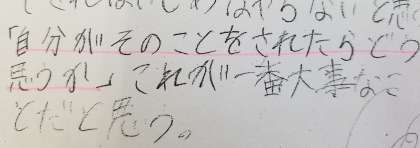 ればいじめはやらないと思
「自分がそのことをされたらどう
思うか」これが一番大事なこ
とだと思う。